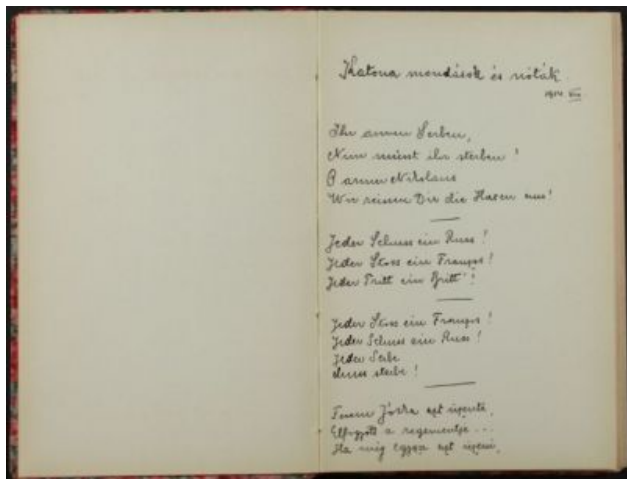 Katona mondások és nóták
1914 VIII.
Ihr armen Serben,
Nun müsst ihr sterben!
O armer Nikolaus
Wir reissen Dir die Haxen aus!
Jeder Schuss ein Russ!
Jeder Stoss ein Franzos!
Jeder Tritt ein Britt!
Jeder Stoss ein Franzos!
Jeder Schuss ein Russ!
Jeder Serbe
Muss sterbe!
Ferenc Jóska azt üzente,
Elfogyott a regementje...
Ha még egyszer azt üzeni,